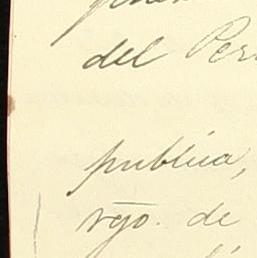 del Per
publica,
vgo. de